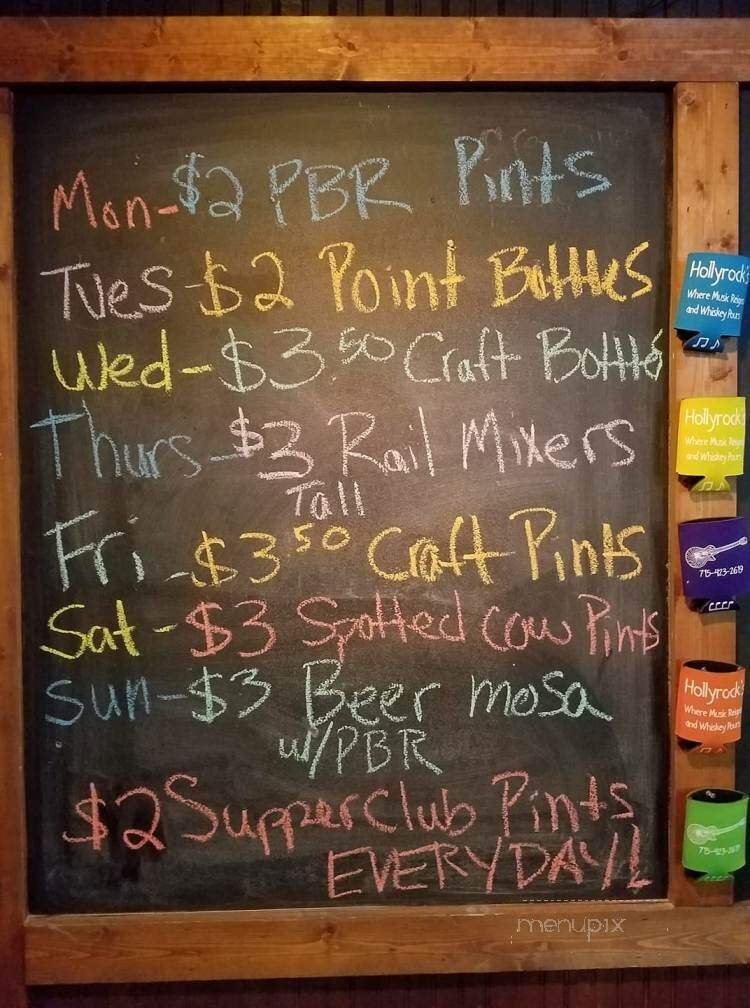 Mon-$2 PBR Pints
Tues-$2 Point Bottles
Wed-$3.50 Craft Bottles
Thurs-$3 Rail Mixers
Tall
Fri-$3 50 Craft Pints
Sat-$3 Spotted Cow Pints
Sun-$3 Beer mosa
w/PBR
$2 Supper Club Pints
EVERYDAY!!
Hollyrock's
Where Music Reigns
and Whiskey Pours
Hollyrock's
Where Music Reigns
and Whiskey Pours
715-423-2619
Hollyrock's
Where Music Reigns
and Whiskey Pours
715-423-2619
menupix